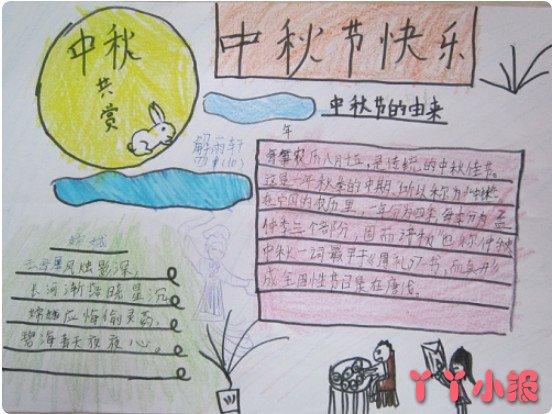 中秋
共赏
中秋节快乐
中秋节的由来
解雨轩
四(10)
年
每年农历八月十五，是传统的中秋佳节。
这是一年秋季的中期，所以称为中秋。
在中国的农历里，一年分为四季，每季分为孟
仲季三个部分，因而中秋也称仲秋
中秋一词最早于《周礼》一书，而真形
成全国性节日是在唐代。
嫦娥
云母屏风烛影深，
长河渐落晓星沉
嫦娥应悔偷灵药，
碧海青天夜夜心。
丫丫小报